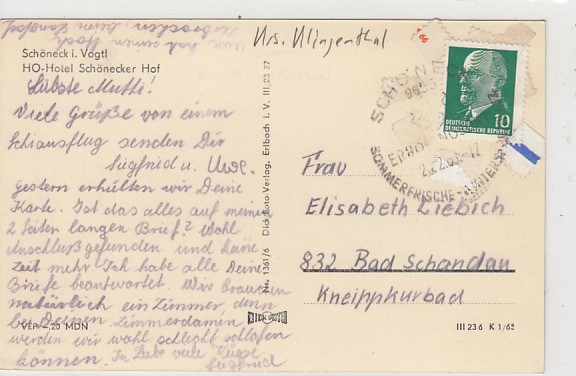 Krs. Klingenthal
Schöneck i. Vogtl
HO-Hotel Schönecker Hof
Liebste Mutti!
Viele Grüße von einem
Schiausflug senden Dir
Siegfried u. Uwe.
gestern erhielten wir Deine
Karte. Ist das alles auf meinen
2 Seiten langen Brief? Wohl
Anschluß gefunden und keine
Zeit mehr. Ich habe alle Deine
Briefe beantwortet. Wir brauchen
natürlich ein Zimmer, denn
bei Deinen Zimmerdamen
werden wir wohl schlecht schlafen
können. In Liebe viele Küsse
Siegfried
VEP -,20 MDN
Nr. 1361/6 Dick-Foto-Verlag, Erlbach i. V. III 23 27
DICK
SCHÖNECK
SOMMERFRISCHE
10
DEUTSCHE
DEMOKRATISCHE REPUBLIK
Frau
Elisabeth Liebich
832 Bad Schandau
Kneippkurbad
III 23 6 K 1/65